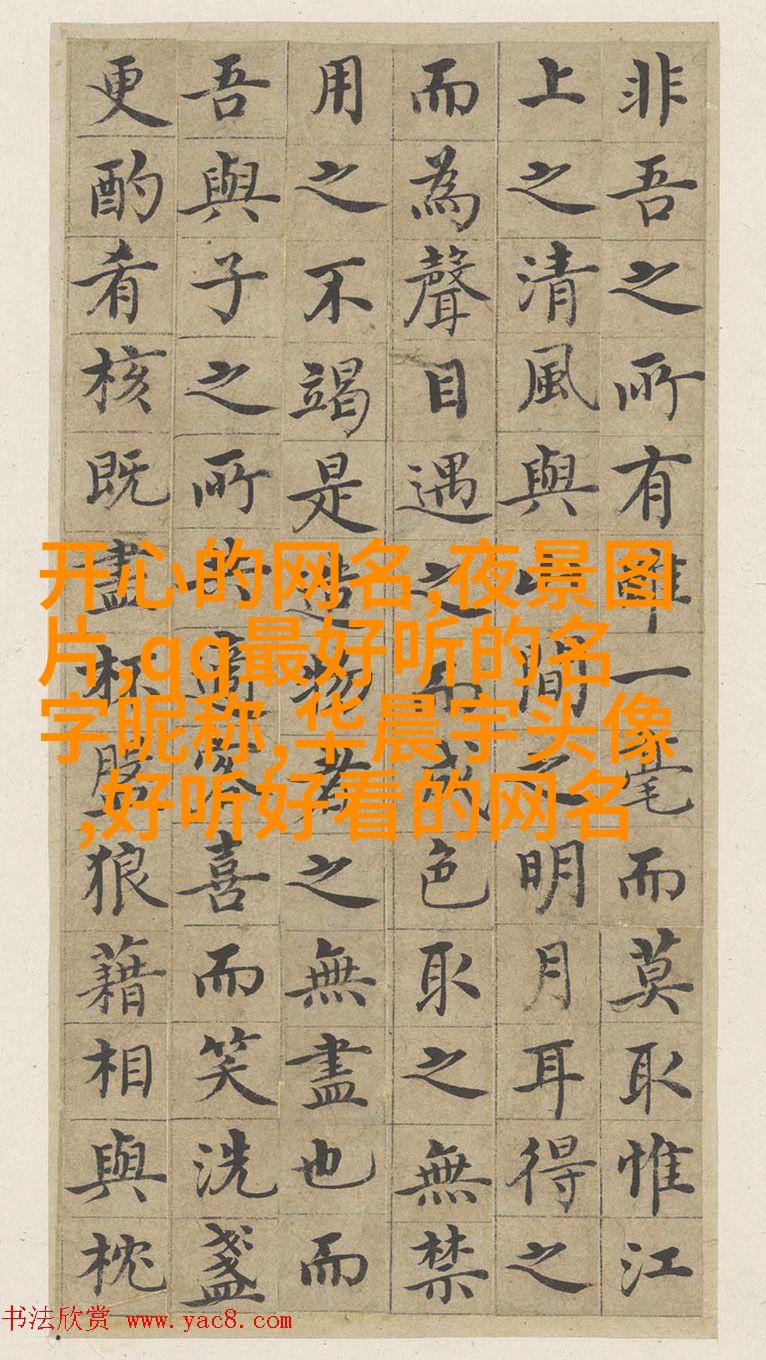 非吾之所有雖一毫而莫取惟江
上之清風與山間之明月耳得之
而為聲目遇之而成色取之無禁
用之不竭是造物者之無盡也而
吾與子之所共適客喜而笑洗盞
更酌肴核既盡杯盤狼藉相與枕
开心的网名,夜景图
片,qq最好听的名
字昵称,华晨宇头像
,好听好看的网名
书法欣赏 www.yac8.com